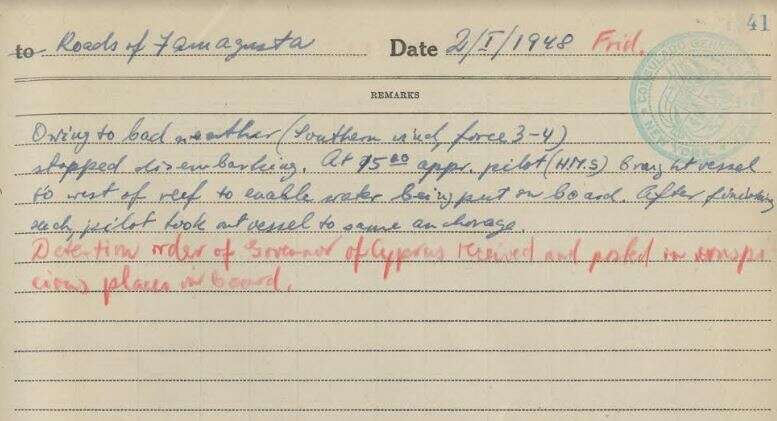 41
to Roads of Famagusta Date 2/I/1948 Frid.
REMARKS
Owing to bad weather (Southern wind, force 3-4)
stopped disembarking. At 15⁰⁰ appr. pilot (H.M.S) braight vessel
to west of reef to enable water being put on board. After finishing
such, pilot took out vessel to same anchorage.
Detention order of Governor of Cyprus received and posted in conspi
cious places on board.
CONSULADO GENERAL
NEW YORK